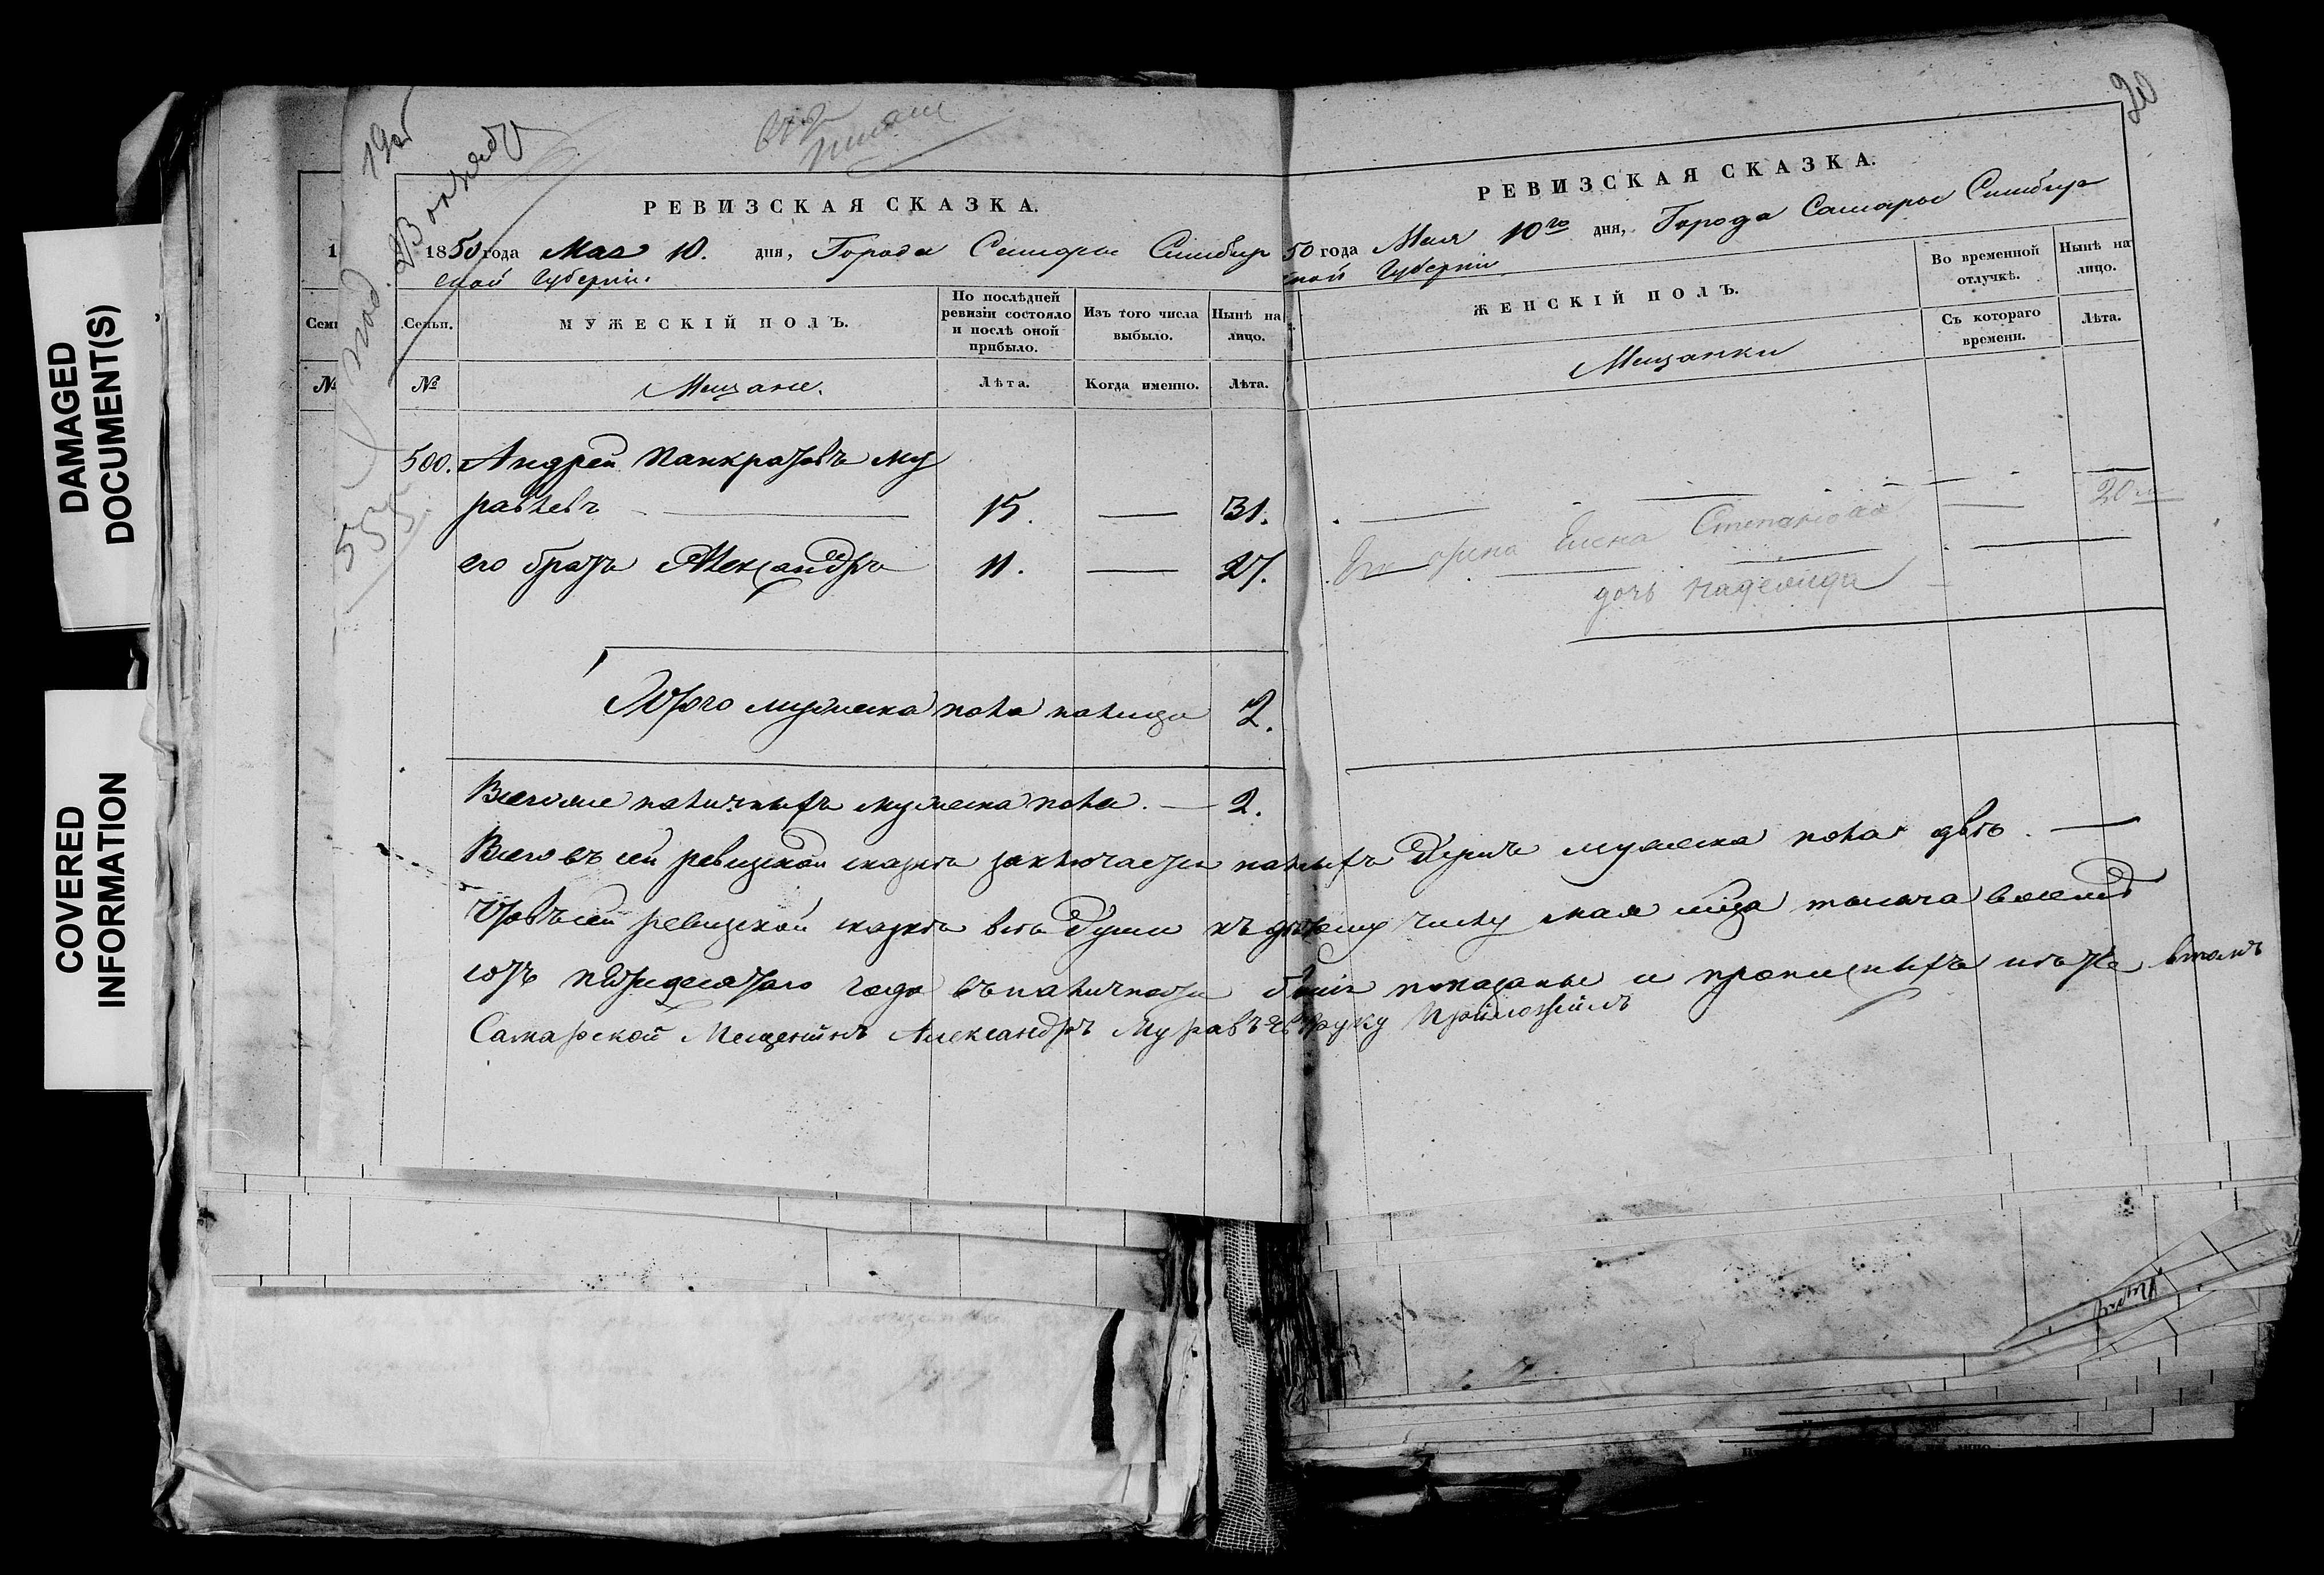 DAMAGED
DOCUMENT(S)
COVERED
INFORMATION
19об
555
РЕВИЗСКАЯ СКАЗКА.
1850 года Мая 10. дня, Города Самары Симбир
ской Губерніи.
Семьи. МУЖЕСКІЙ ПОЛЪ. По послѣдней ревизіи состояло и послѣ оной прибыло. Изъ того числа выбыло. Нынѣ на лицо.
№ Мещане. Лѣта. Когда именно. Лѣта.
500. Андрей Панкратовъ Му
равьевъ 15. — 31.
его братъ Александръ 11. — 27.
Итого мужеска пола налицо 2.
Всего же наличныхъ мужеска пола. — 2.
20
РЕВИЗСКАЯ СКАЗКА.
50 года Мая 10го дня, Города Самары Симбир
ской Губерніи
ЖЕНСКІЙ ПОЛЪ. Во временной отлучкѣ. Нынѣ на лицо.
Мещанки Съ котораго времени. Лѣта.
жена Елена Степанова — 20
дочь Надежда
Всего въ сей ревизской сказкѣ заключается налич душъ мужеска пола двѣ. —
Что въ сей ревизской сказкѣ всѣ души къ числу мая мѣсяца тысяча восемь
сотъ пятидесятаго года въ наличности были показаны и прописныхъ нѣтъ въ томъ
Самарской Мещенинъ Александръ Муравъевъ руку Приложилъ